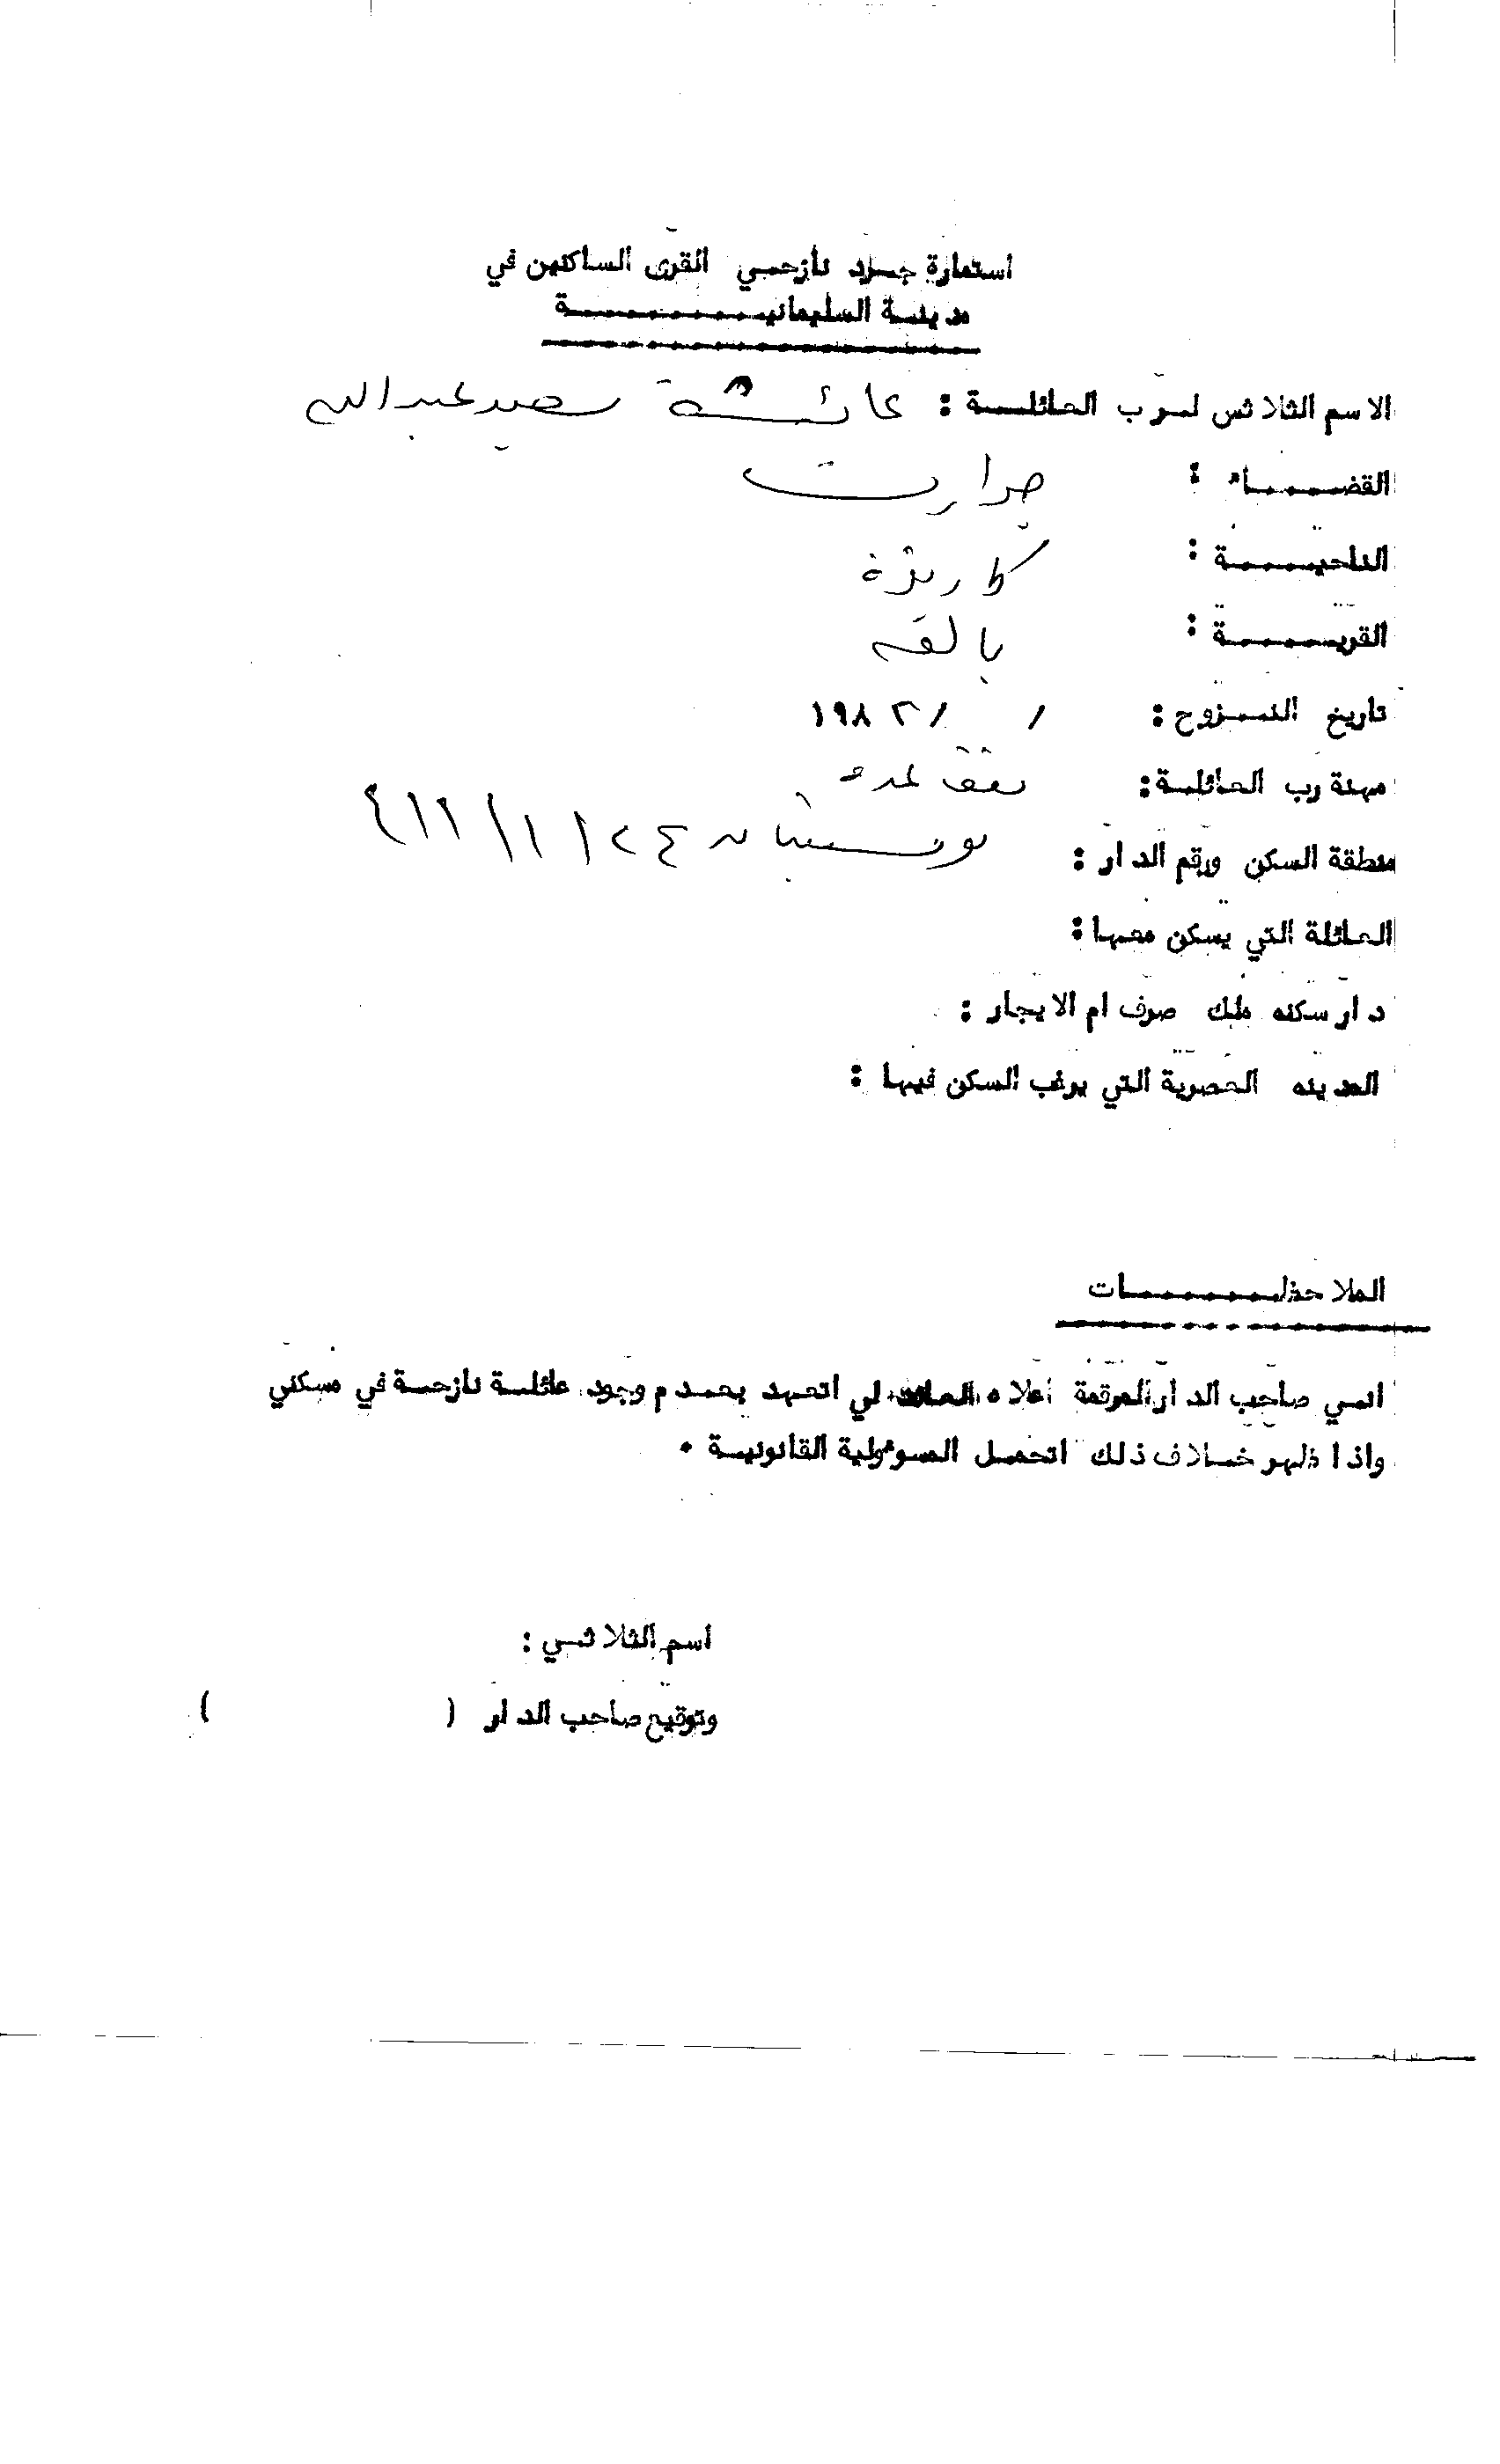 استمارة جرد نازحي القرى الساكنين في
مدينة السليمانيـــــــــة
الاسم الثلاثي لرب العائلـة : عائشة سعيد عبدالله
القضـــــاء :
الناحيـــــة :
القريـــــة :
تاريخ النـزوح : / / ١٩٨٢
مهنة رب العائلـة :
منطقة السكن ورقم الدار :
العائلة التي يسكن معها :
دار سكنه ملك صرف ام الايجار :
المدينه العصرية التي يرغب السكن فيها :
الملاحظـــــــات
انـي صاحب الدار المرقمة اعلاه لي اتعهد بعـدم وجود عائلـة نازحـة في مسكني
واذا ظهر خـلاف ذلك اتحمـل المسوءولية القانونيـة •
اسم الثلاثـي :
وتوقيع صاحب الدار ( )